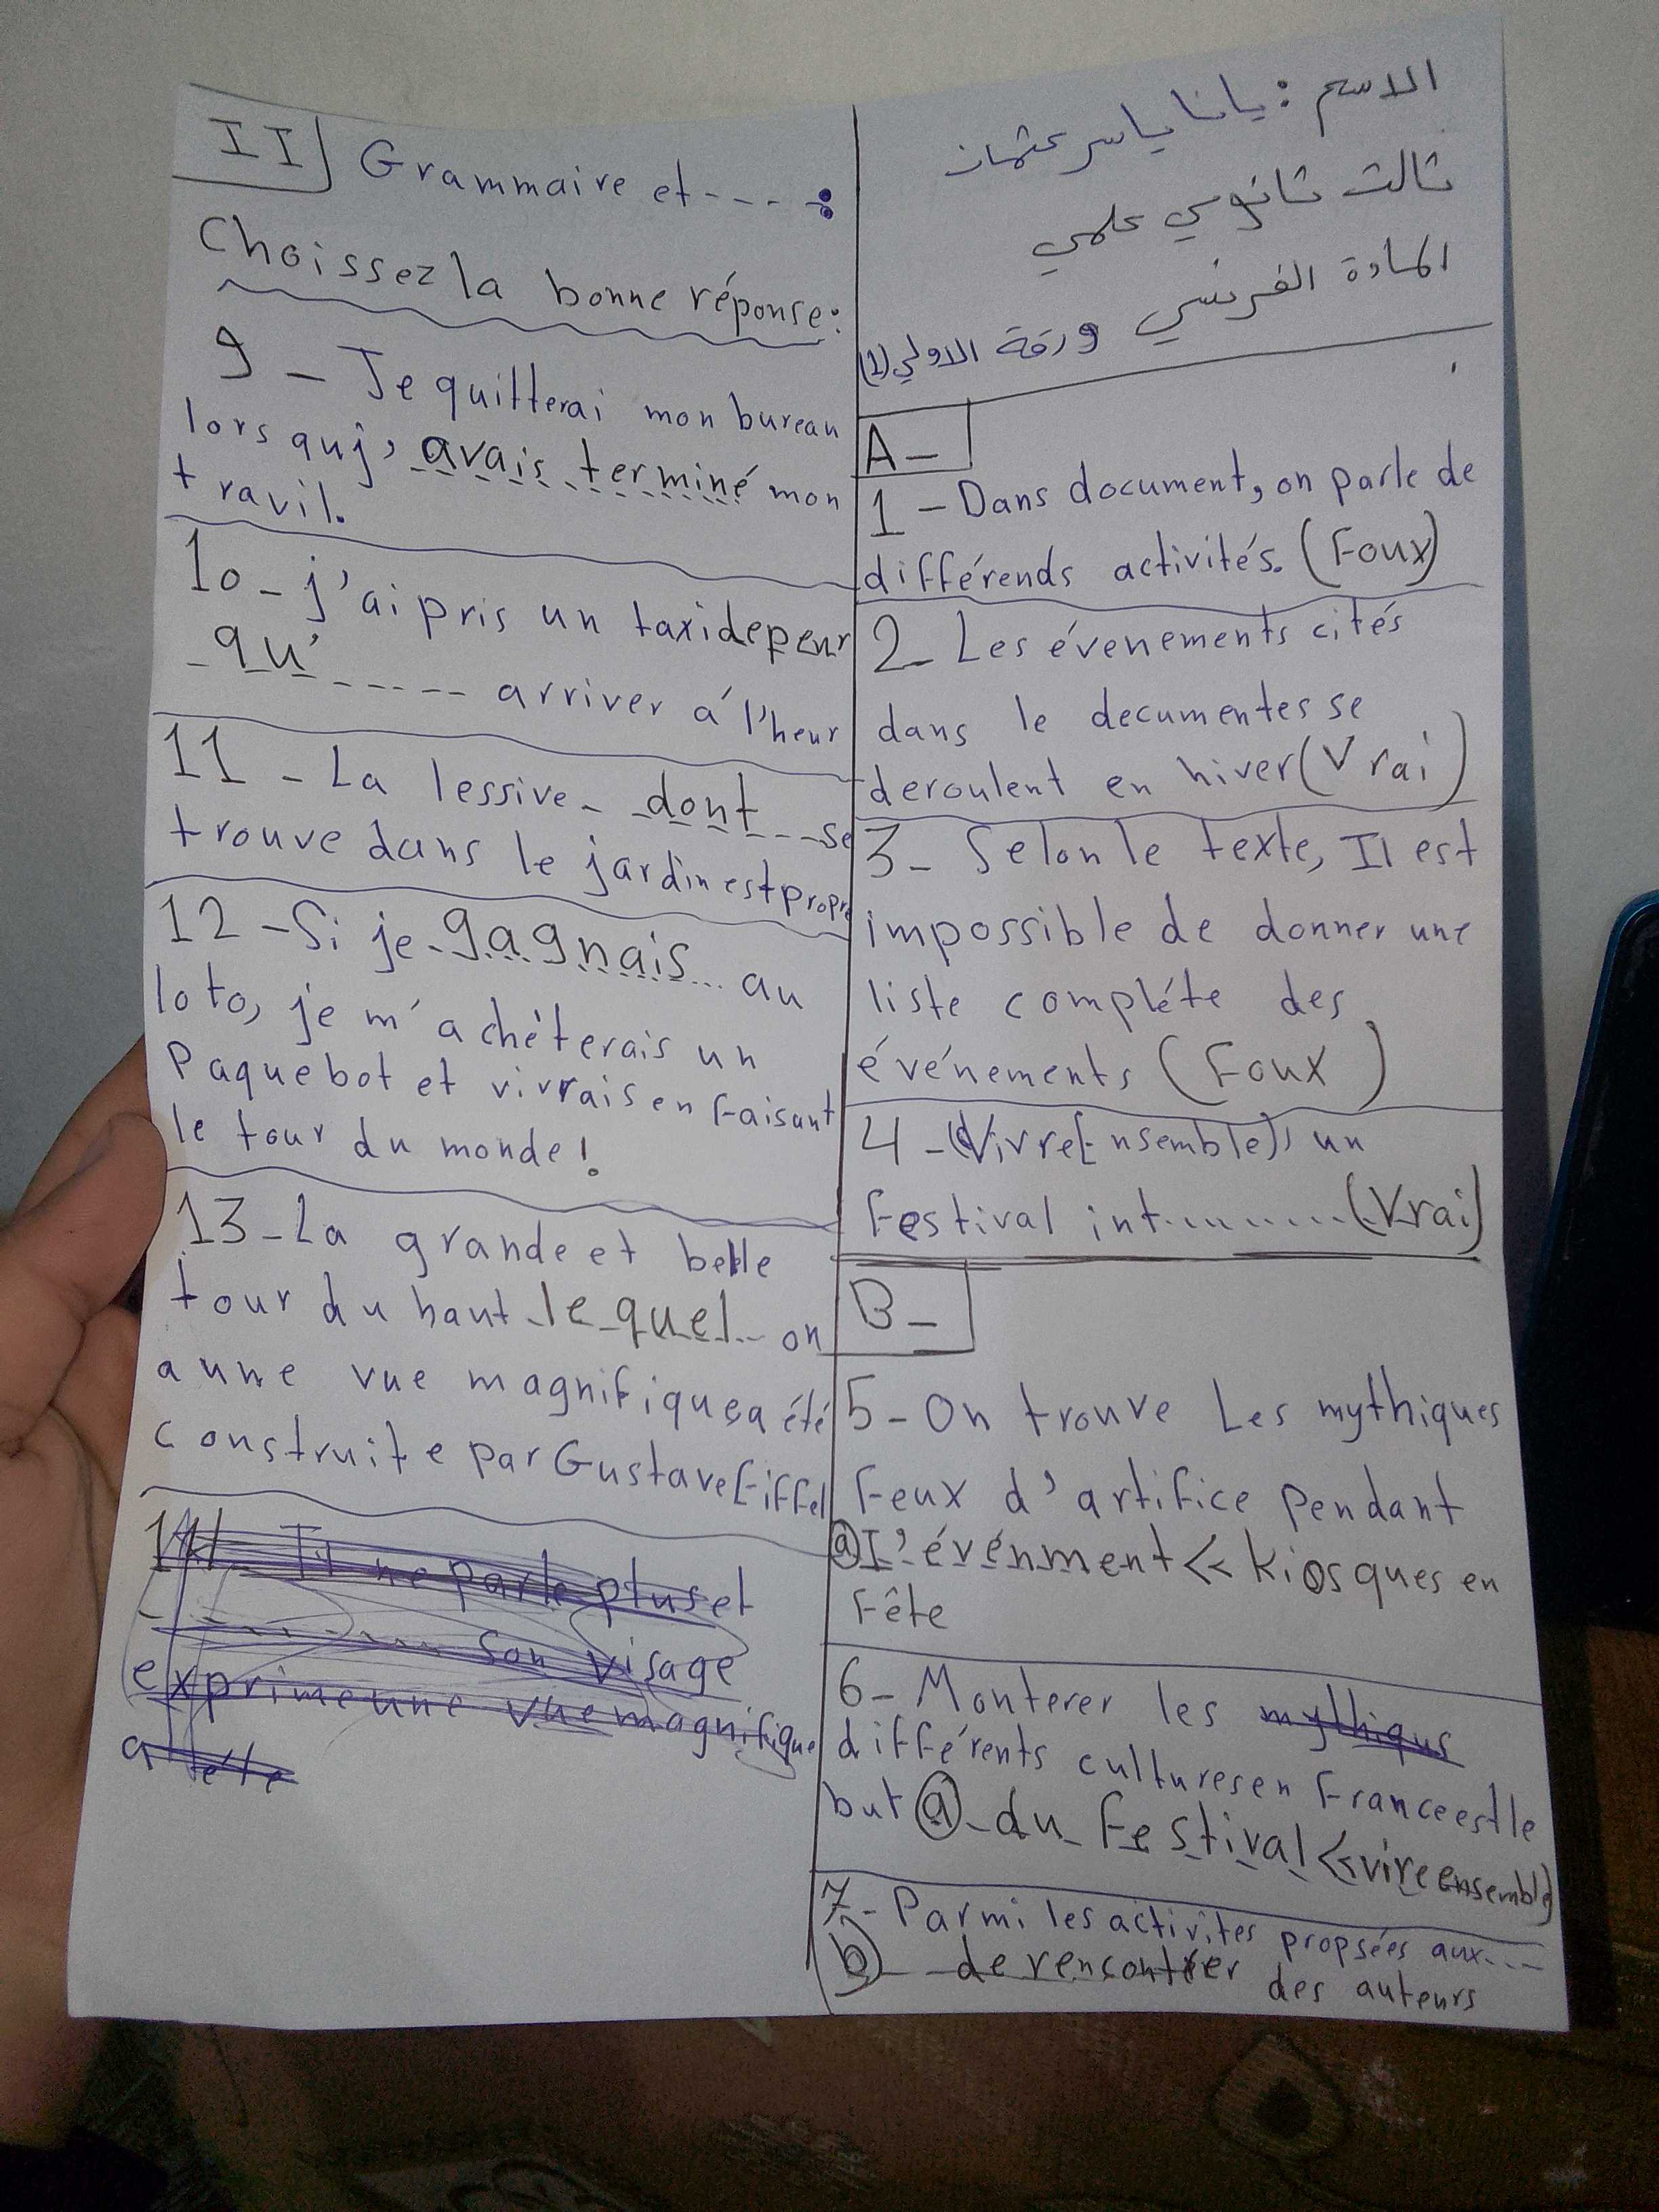 الاسم : يانا ياسر عثمان
ثالث ثانوي علمي
المادة الفرنسي
ورقة الاولى (1)
A-
1 - Dans document, on parle de
différends activités. (Foux)
2- Les évenements cités
dans le decumentes se
deroulent en hiver (Vrai)
3- Selon le texte, Il est
impossible de donner une
liste compléte des
événements (Foux)
4 - «Vivre Ensemble» un
Festival int......... (Vrai)
B-
5- On trouve Les mythiques
Feux d'artifice pendant
a L'événment << kiosques en
Fête
6- Monterer les mythiqus
différents cultures en France est le
but a - du Festival << vire ensemble
7- Parmi les activites propsées aux...
b - de rencontrer des auteurs
II Grammaire et ---- :
Choissez la bonne réponse:
9 - Je quitterai mon bureau
lors quj' avais terminé mon
travil.
10 - j'ai pris un taxi de peur
- qu' ------ arriver á l'heur
11 - La lessive - dont --- se
trouve dans le jardin est propre
12 - Si je - gagnais ... au
loto, je m'achèterais un
Paquebot et vivrais en Faisant
le tour du monde !
13 - La grande et belle
tour du haut le quel ... on
a une vue magnifique a été
construite par Gustave Eiffel
14 - Il ne parle plus et
------- son visage
exprime une vue magnifique
a été